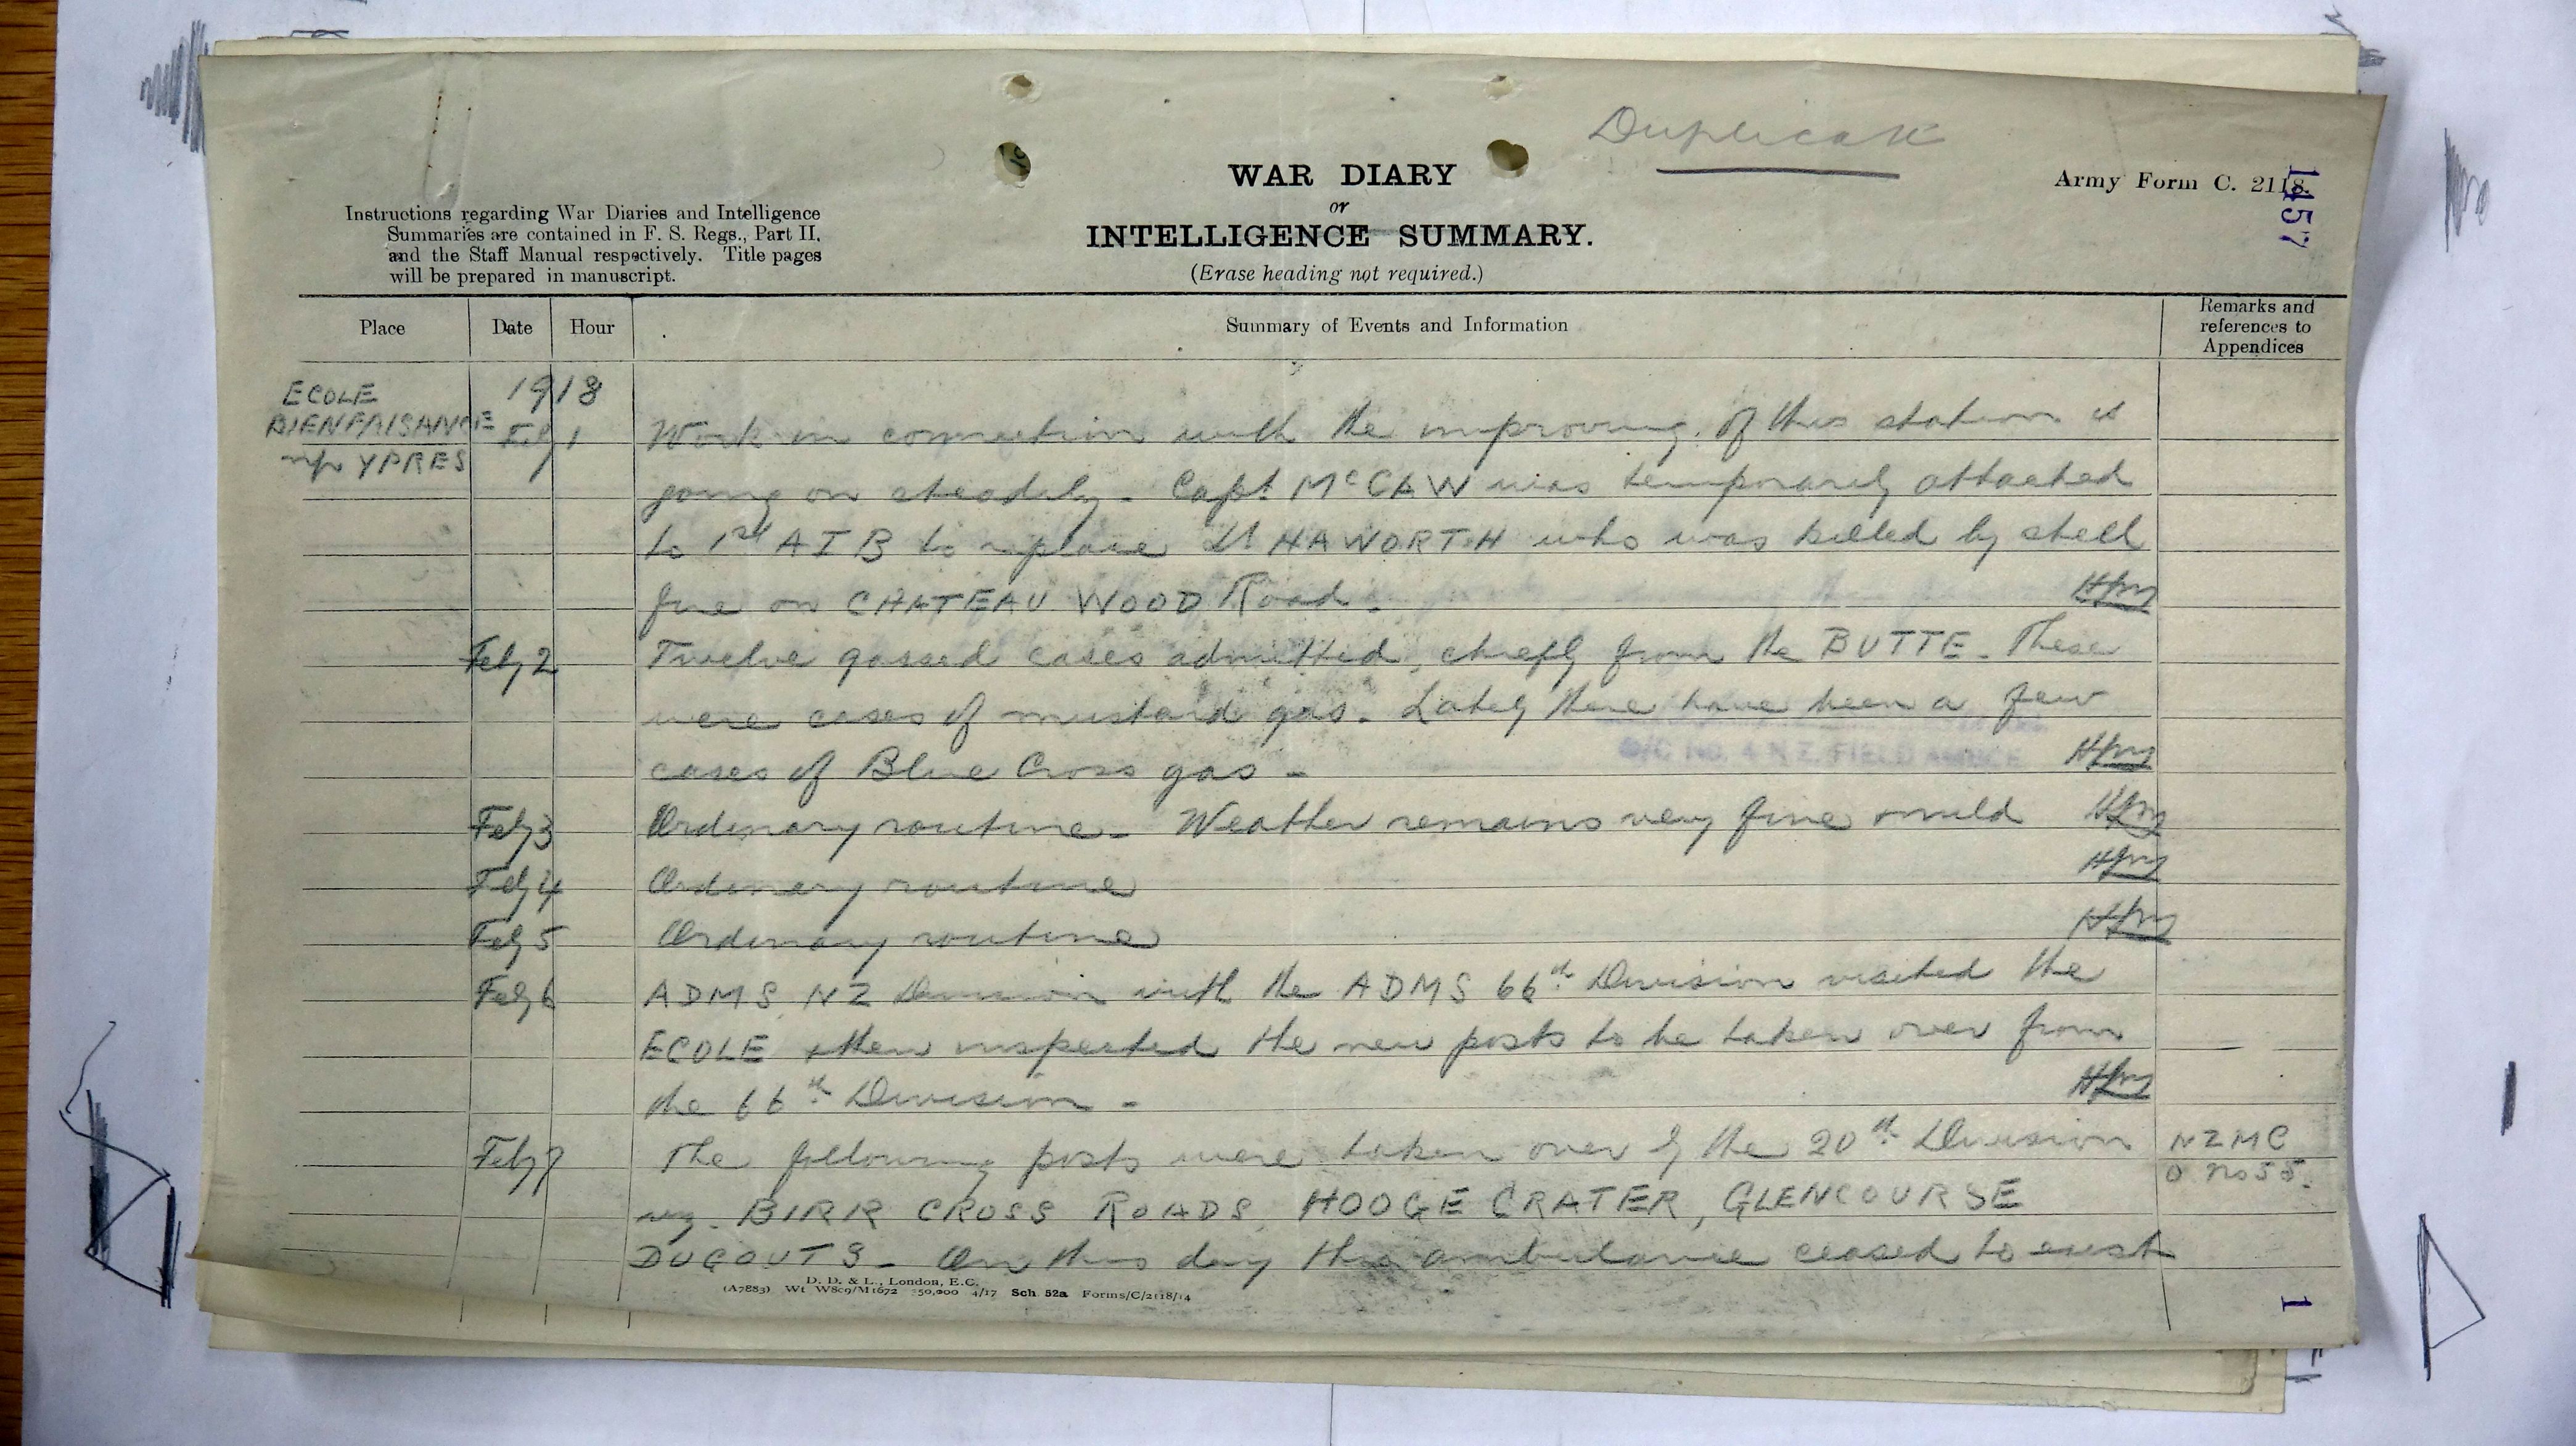 Duplicate
WAR DIARY
or
INTELLIGENCE SUMMARY.
(Erase heading not required.)
Army Form C. 2118.
1457
Instructions regarding War Diaries and Intelligence
Summaries are contained in F. S. Regs., Part II,
and the Staff Manual respectively. Title pages
will be prepared in manuscript.
Place Date Hour Summary of Events and Information Remarks and
references to
Appendices
ECOLE 1918
BIENFAISANCE Feby 1 Work in connection with the improving of this station is
YPRES going on steadily - Capt McCAW was temporarily attached
to 1st A I B to replace Lt HAWORTH who was killed by shell
fire on CHATEAU WOOD Road -
Feby 2 Twelve gassed cases admitted, chiefly from the BUTTE - These
were cases of mustard gas. Lately there have been a few
cases of Blue Cross gas -
O/C No. 4 N Z. FIELD AMBCE
Feby 3 Ordinary routine - Weather remains very fine & mild
Feby 4 Ordinary routine
Feby 5 Ordinary routine
Feby 6 ADMS NZ Division with the ADMS 66th Division visited the
ECOLE & then inspected the new posts to be taken over from
the 66th Division -
Feby 7 The following posts were taken over by the 20th Division NZMC
O No 55.
viz. BIRR CROSS ROADS, HOOGE CRATER, GLENCOURSE
DUGOUTS - On this day this ambulance ceased to exist
D. D. & L., London, E.C.
(A7883) Wt W809/M1672 350,000 4/17 Sch. 52a Forms/C/2118/14
1